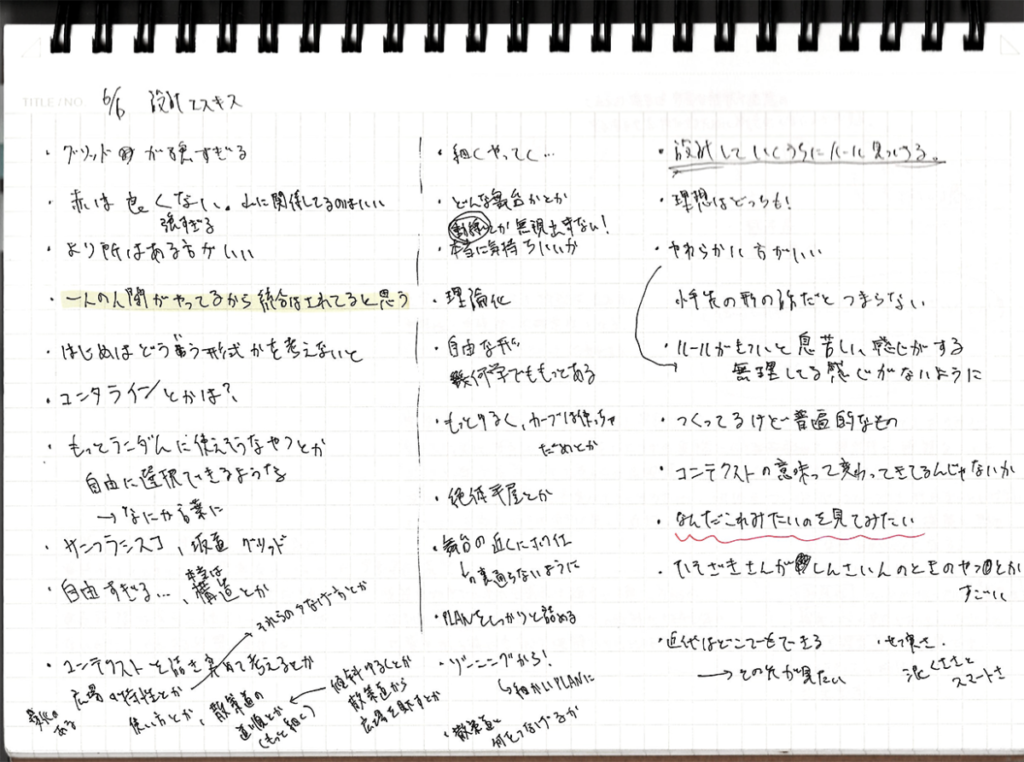 TITLE/NO. 6/6 設計エスキス
・グリッドが強すぎる
・赤は良くない。山に関係してるのはいい
張すぎる
・より所はある方がいい
・一人の人間がやってるから統合はされてると思う
・はじめはどう言う形式かを考えないと
・コンタラインとかは?
・もっとランダムに使えそうなやつとか
自由に選択できるような
→なにか言葉に
・サンフランシスコ、坂道 グリッド
・自由すぎる…、本当は構造とか
それらのつなげ方とか
・コンテクストを踏まえて考えるとか
広場の特性とか
変化のある
使い方とか、散策道の
道順とか
(もっと細く)
← 傾斜ゆるくとか
散策道から
広場を
・細くやってく…
・どんな舞台かとか
動線とか無視出来ない!
・本当に気持ちいいか
・理論化
・自由な形
幾何学でももっとある
・もっとゆるく、カーブは使っちゃ
だめとか
・絶体平屋とか
・舞台の近くにホワイエ
裏通らないように
・PLANをしっかりと詰める
・ゾーニングから!
↳細かいPLANに
・散策道と
何をつなげるか
・設計していくうちにルール見つける。
・理想はどっちも!
・やわらかい方がいい
小手先の形の話だとつまらない
・ルールがもつと息苦しい感じがする
無理してる感じがないように
・つくってるけど普遍的なもの
・コンテクストの意味って変わってきてるんじゃないか
・なんだこれみたいのを見てみたい
・ひえざきさんがしんさいんのときのヤツとか
すごい
・近代はどこでもできる
→その先が見たい
・切実さ.
泥くささと
スマートさ